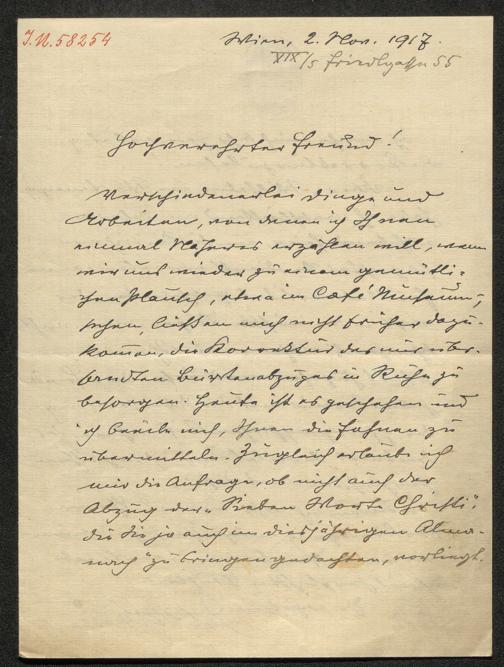 I.N. 58254
Wien, 2. Nov. 1917.
XIX/5 Friedlgasse 55
Hochverehrter Freund!
Verschiedenerlei Dinge und
Arbeiten, von denen ich Ihnen
einmal Näheres erzählen will, wenn
wir uns wieder zu einem gemütli-
chen Plausch, etwa im Café Museum,
sehen, ließen mich nicht früher dazu-
kommen, die Korrektur des mir über-
sandten Bürstenabzuges in Ruhe zu
besorgen. Heute ist es geschehen und
ich beeile mich, Ihnen die Fahnen zu
übermitteln. Zugleich erlaube ich
mir die Anfrage, ob nicht auch der
Abzug der „Sieben Worte Christi",
die Sie ja auch im diesjährigen „Alma-
nach" zu bringen gedachten, vorliegt.